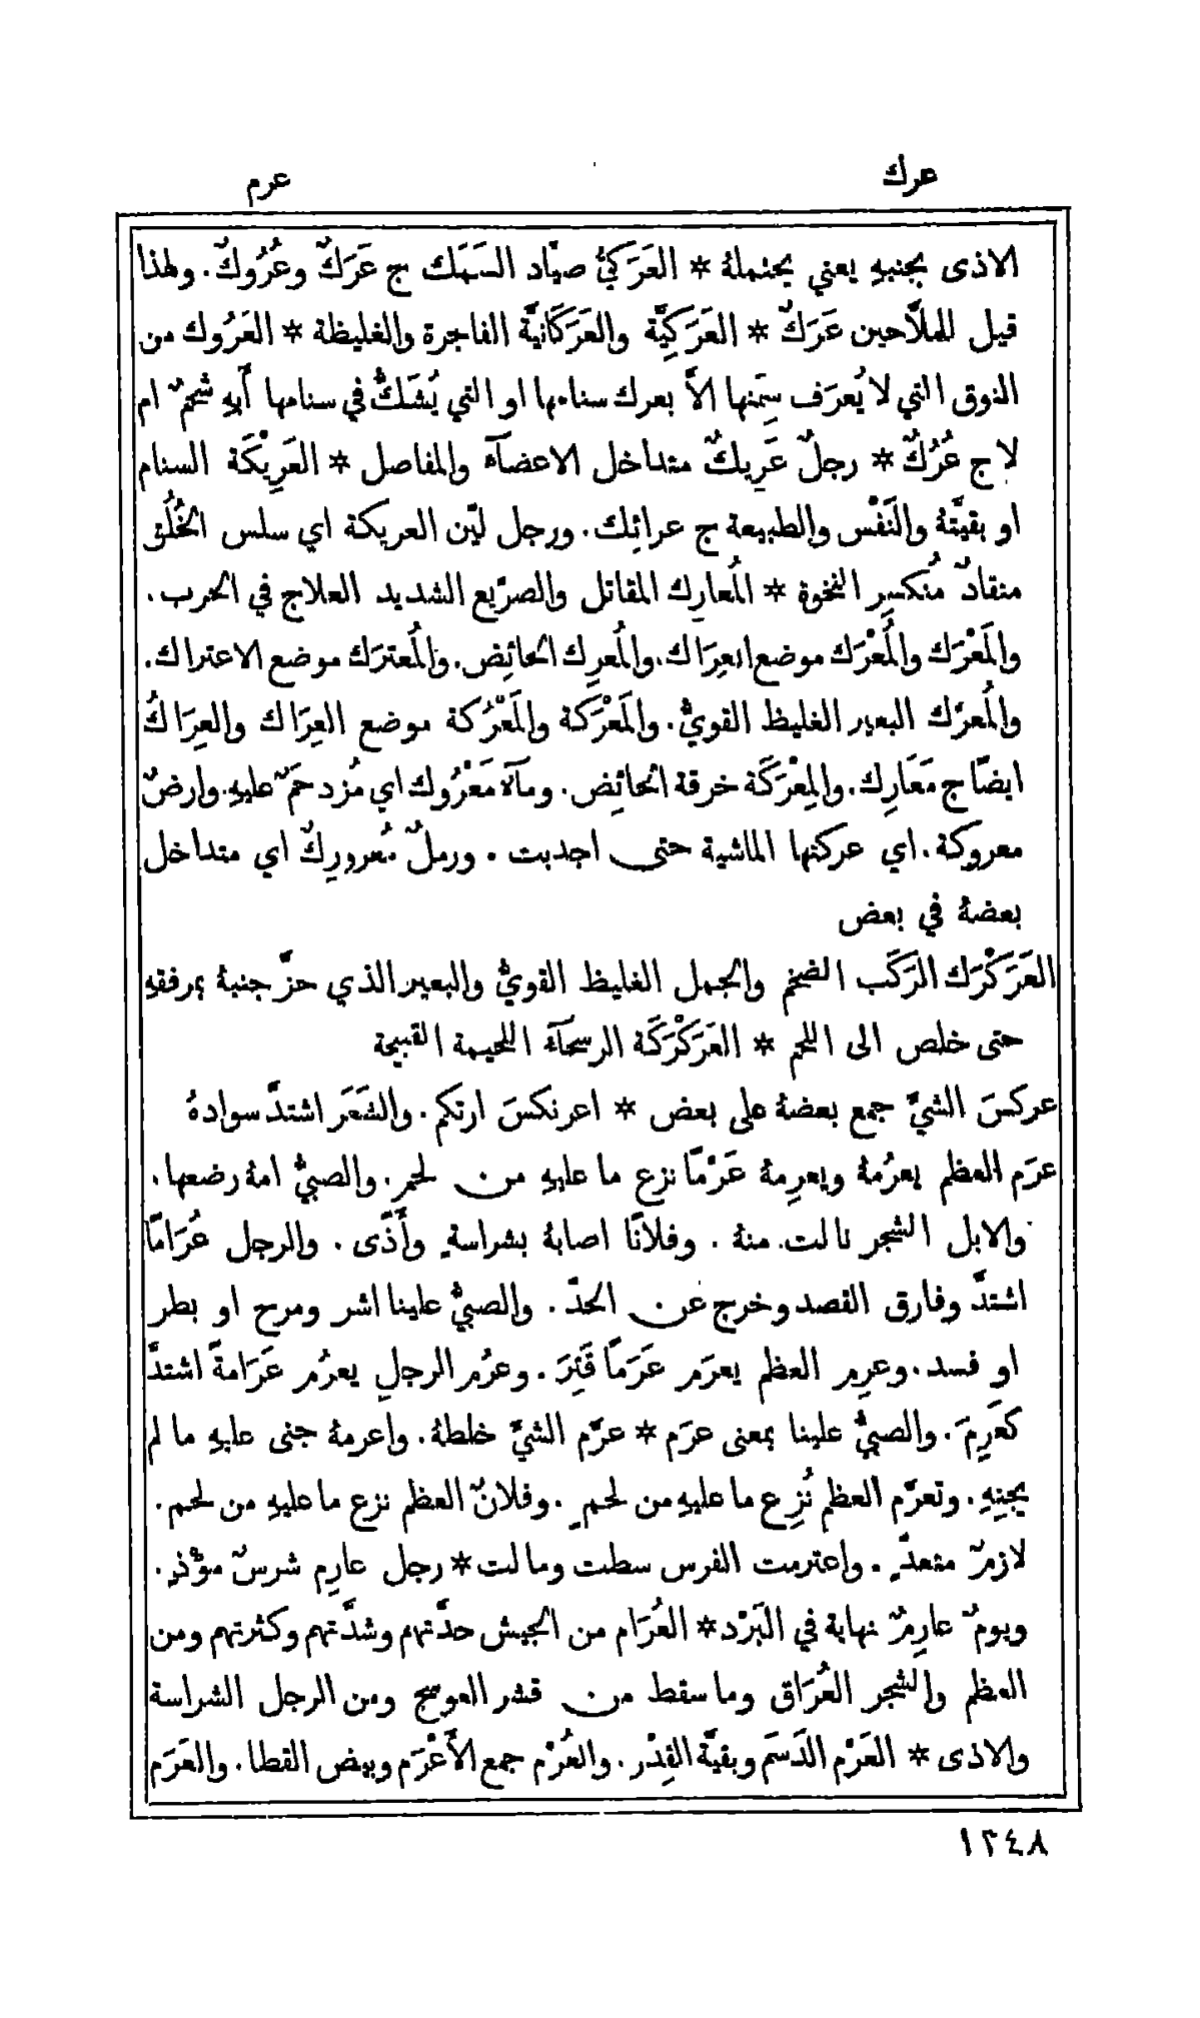 عرك
عرم
الاذى بجنبهِ يعني يحتملهُ * العَرَكيُّ صيَّاد السَمَك ج عَرَكٌ وعُرُوكٌ. ولهذا
قيل للملَّاحين عَرَكٌ * العَرَكِيَّة والعَرَكَانيَّة الفاجرة والغليظة * العَرُوك من
النوق التي لا يُعرَف سِمَنها الاَّ بعرك سنامها او التي يُشَكُّ في سنامها أَبهِ شحمٌ ام
لا ج عُرُكٌ * رجلٌ عَرِيكٌ متداخل الاعضآء والمفاصل * العَرِيْكَة السنام
او بقيَّتهُ والنَفْس والطبيعة ج عرائِك. ورجل ليّن العريكة اي سلس الخُلُق
منقادٌ مُنكسِر النخوة * المُعارِك المقاتل والصرّيع الشديد العلاج في الحرب.
والمَعْرَك والمُعْرَك موضع العِرَاك. والمُعرِك الحائِض. والمُعترَك موضع الاعتراك.
والمُعرَّك البعير الغليظ القويُّ. والمَعْرَكة والمَعْرُكة موضع العِرَاك والعِرَاكُ
ايضًا ج مَعَارِك. والمِعْرَكَة خرقة الحائِض. ومآء مَعْرُوك اي مُزدحَمٌ عليهِ. وارضٌ
معروكة. اي عركتها الماشية حتى اجدبت. ورملٌ مُعرورِكٌ اي متداخل
بعضهُ في بعض
العَرَكْرَك الرَكَب الضخم والجمل الغليظ القويُّ والبعير الذي حزَّ جنبهُ بمرفقهِ
حتى خلص الى اللحم * العَرَكْرَكَة الرسحآء اللحيمة القبيحة
عركسَ الشيَّ جمع بعضهُ على بعض * اعرنكسَ ارتكم. والشَعَر اشتدَّ سوادهُ
عرَم العظم يعرُمهُ ويعرِمهُ عَرْمًا نزع ما عليهِ من لحمٍ. والصبيُّ امهُ رضعها.
والابل الشجر نالت منهُ. وفلانًا اصابهُ بشراسةٍ وأَذًى. والرجل عُرَامًا
اشتدَّ وفارق القصد وخرج عن الحدّ. والصبيُّ علينا اشر ومرح او بطر
او فسد. وعرِم العظم يعرَم عَرَمًا قَتِرَ. وعرُم الرجل يعرُم عَرَامةً اشتدَّ
كعَرِمَ. والصبيُّ علينا بمعنى عرَم * عرَّم الشيَّ خلطهُ. واعرمهُ جنى عليهِ ما لم
يجنِهِ. وتعرَّم العظم نُزِع ما عليهِ من لحمٍ. وفلانٌ العظم نزع ما عليهِ من لحم.
لازمٌ متعدٍّ. واعترمت الفرس سطت ومالت * رجل عارِم شرسٌ موْذٍ.
ويومٌ عارِمٌ نهاية في البَرْد * العُرَام من الجيش حدَّتهم وشدَّتهم وكثرتهم ومن
العظم والشجر العُرَاق وما سقط من قشر العوسج ومن الرجل الشراسة
والاذى * العَرْم الدَسَم وبقيَّة القِدْر. والعُرْم جمع الأَعْرَم وبيض القطا. والعَرَم
١٣٤٨